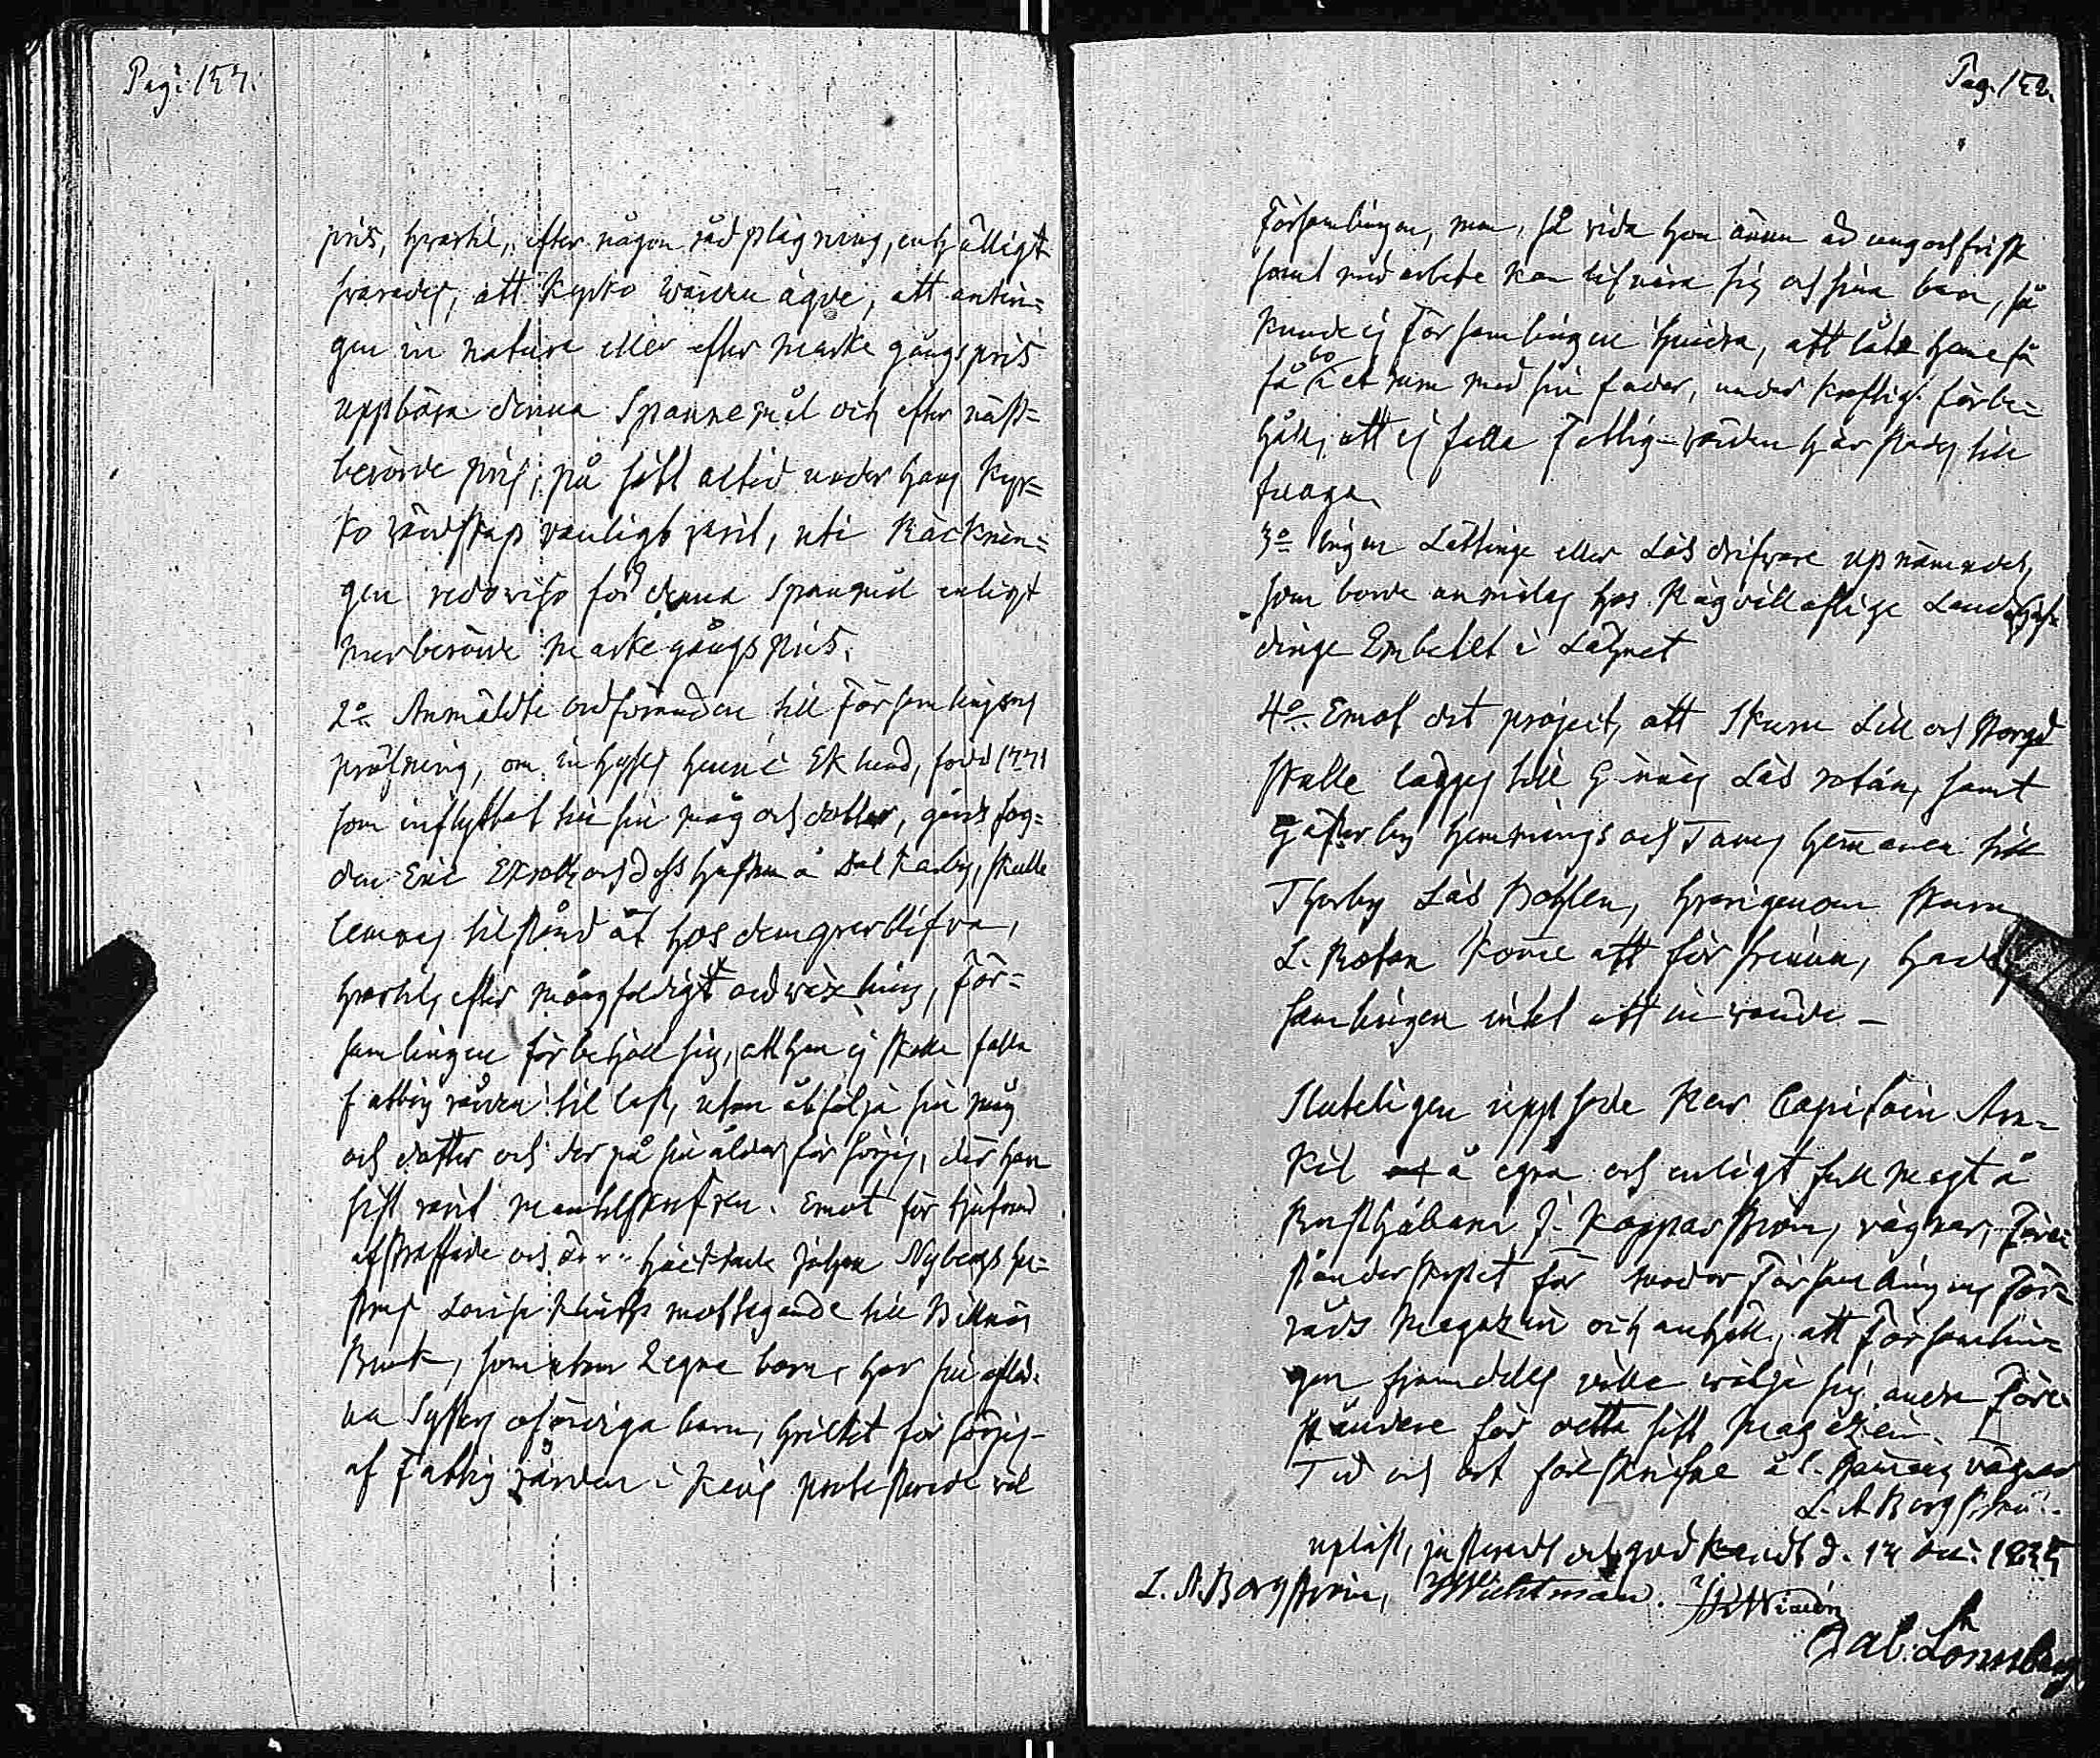 Pag. 151.
pris, hvartil, efter någon rådplägning, enhälligt
svarades, att Kyrko Wärden ägde, att antin=
gen in natura eller efter Markegångs pris
uppbära denna Spannemål och efter näst=
berörde pris, på sätt altid under hans Kyr=
ko värdskap vanligt varit, uti Räcknin=
gen redovisa för denna Spanmål enligt
merberörde Markegångs pris.
2o Anmäldte ordföranden till Församlingens
pröfning, om inhyses Henric Eklund, född 1771
som inflyttat till sin måg och dotter, gårds fog=
den Eric Ekroth och dess hustru å Dal Karby, skulle
lemnas tilstånd at hos dem qvarblifva,
hvartil, efter mångfaldigt ordväxling, För=
samlingen förbehöll sig, att han ej skulle falla
fattig vården till last, utan åtfölja sin måg
och dotter och der på sin ålder försörjas, der han
sist varit Mantalskrifven. Emot för tjufnad
afstraffade och häcktade Johan Nybergs hu=
strus Lovisa mottagande till Billnäs
Bruk, som utom 2 egna barn, har sin aflid=
na Systers oförsörjda barn, hvilket försörjes
af Fattig vården i Karis protesterade väl
Pag. 152.
Församlingen, men, så vida hon ännu är ung och frisk
samt med arbete kan lifnära sig och sina barn, så
kunde ej Församlingen hindra, att låta henne få
bo
så i et rum med sin fader, under kraftigt förbe=
håll, att ej falla Fattig-vården härstädes till
tunga.
3o Ingen Lättinge eller Lösdrifvare upnämndes,
som borde anmälas hos Högvällofliga Landshöf=
dinge Embetet i Länet
4o Emot det project, att Skuru Lill och Storgård
skulle läggas till Ginnäs Läs rotan, samt
Gästerby Hemmings och Tavas hemmanen till
Thorby Läs Bohlen, hvarigenom Skuru
L. Rotan komme att försvinna, hade
samlingen intet att invända —
Sluteligen uppsade Herr Capitain Ar=
kil å egna och enligt fullmagt å
Rusthållaren J. Kopparström, vägnar, Före=
ståndarskapet för Svarta Församlingens För=
råds Magazin och anhöll, att Församlin=
gen framdeles ville välja sig andra Före=
ståndare för detta sitt Magazin.
Tid och ort förskrifne å S. Stämmans vägnar
L. A. Borgström.
Upläst, justeradt och godkändt d. 14 Oct. 1835
L. A. Borgström, Wichtman.
Gab. Lönnberg